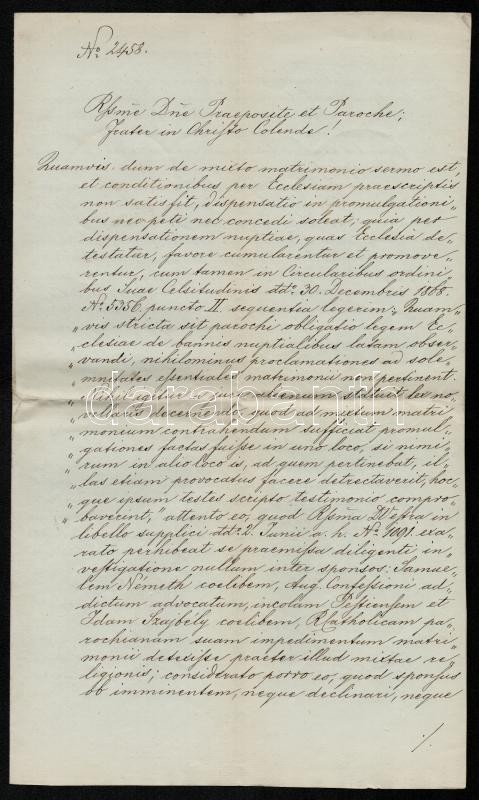 No 2458.
Rssme Dne Praeposite et Paroche,
Frater in Christo Colende!
Quamvis dum de mixto matrimonio sermo est,
et conditionibus per Ecclesiam praescriptis
non satisfit, dispensatio in promulgationi„
bus nec peti nec concedi soleat; quia per
dispensationem nuptiae, quas Ecclesia de„
testatur, favore cumularentur et promove„
rentur, cum tamen in Circularibus ordini„
bus Suae Celsitudinis ddto 30. Decembris 1868.
No 5356. puncto II. sequentia legerim: „Quam„
„vis stricta sit parochi obligatio legem Ec„
„clesiae de bannis nuptialibus latam obser„
„vandi, nihilominus proclamationes ad sole„
„mnitates essentiales matrimonii non pertinent.
„liario decernendo, quod ad mixtum matri„
„monium contrahendum sufficiat promul„
„gationes factas fuisse in uno loco, si nimi„
„rum in alio loco is, ad quem pertinebat, il„
„las etiam provocatus facere detrectaverit, hoc„
„que ipsum testes scripto testimonio compro„
„baverint," attento eo, quod Rssma DV. esra in
libello supplici ddto 2. Junii a. h. No 1091. exa„
rato perhibeat se praemissa diligenti in„
vestigatione nullum inter sponsos: Samue„
lem Németh coelibem, Aug. Confessioni ad„
dictum advocatum, incolam Pestiensem et
Idam Traybely coelibem, RCatholicam pa„
rochianam suam impedimentum matri„
monii detexisse praeter illud mixtae re„
ligionis; considerato porro eo, quod sponsus
ob imminentem, neque declinari, neque
./.
darabanth